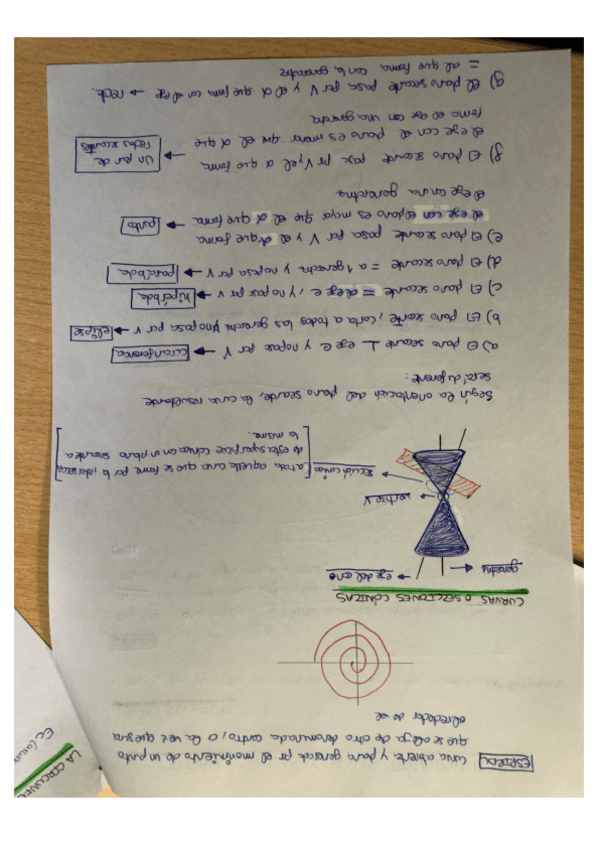 ESPIRAL curva abierta y plana generada por el movimiento de un punto
que se aleja de otro denominado centro, a la vez que gira
alrededor de él
CURVAS O SECCIONES CÓNICAS
generatriz
eje del cono
vértice V
sección cónica
a toda aquella curva que se forma por la intersección
de esta superficie cónica con un plano secante a
la misma.
Según la orientación del plano secante, la curva resultante
será diferente:
a) El plano secante ⊥ eje e y no pasa por V → circunferencia
b) El plano secante, corta a todas las generatrices y no pasa por V → elipse
c) El plano secante = al eje e, y no pasa por V → hipérbola
d) El plano secante = a 1 generatriz y no pasa por V → parábola
e) El plano secante pasa por V y el α que forma
el eje con el plano es mayor que el α que forma → punto
el eje con una generatriz
f) El plano secante pasa por V y el α que forma → un par de
el eje con el plano es menor que el α que rectas secantes
forma el eje con una generatriz
g) El plano secante pasa por V y el α que forma con el eje → recta.
= al que forma con la generatriz
LA CIRCUNFER